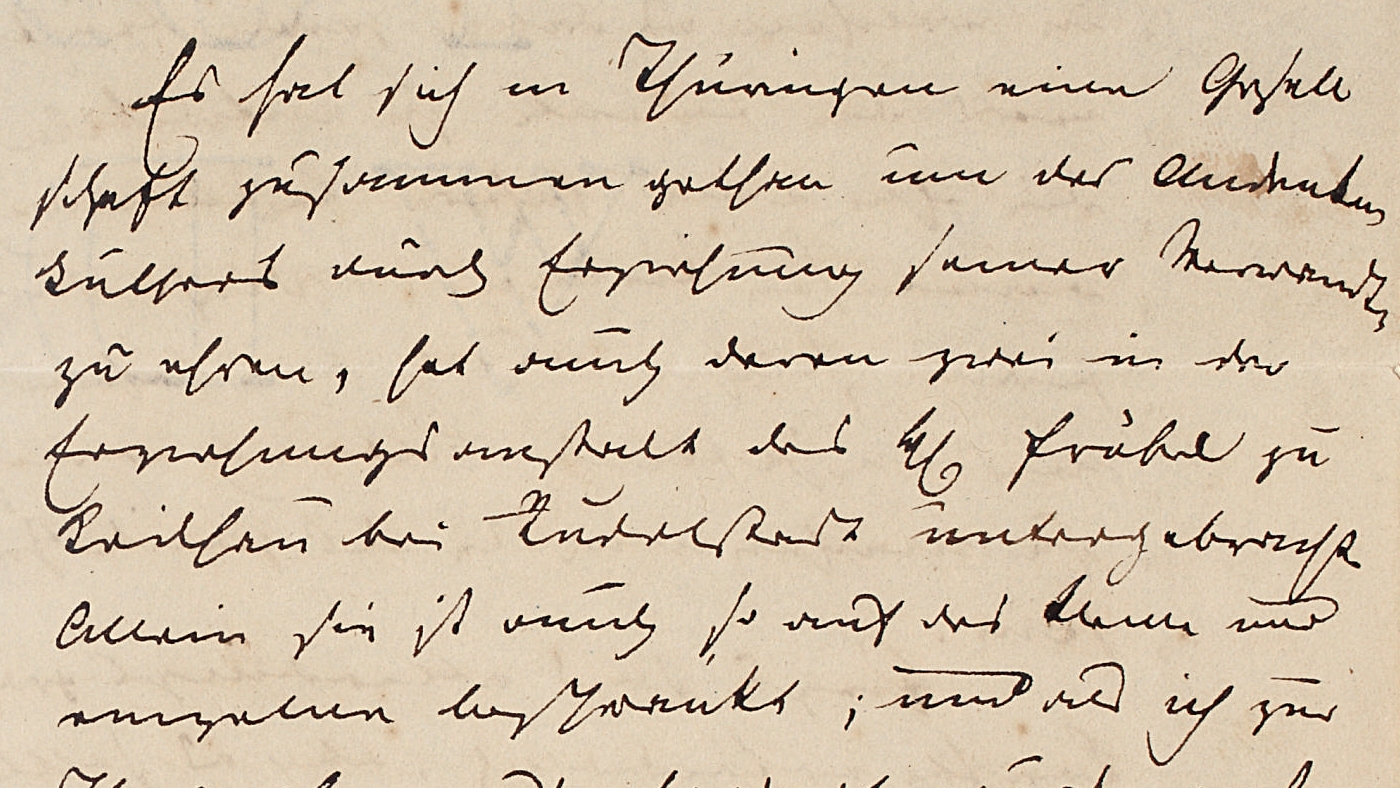 Es hat sich in Thüringen eine Gesell
schaft zusammen gethan um das Andenken
Luthers durch Erziehung seiner Verwandten
zu ehren, hat auch deren zwei in der
Erziehungsanstalt des H Fröbel zu
Keilhau bei Rudolstadt untergebracht
Allein sie ist auch so auf das kleine und
einzelne beschränkt; und als ich zur